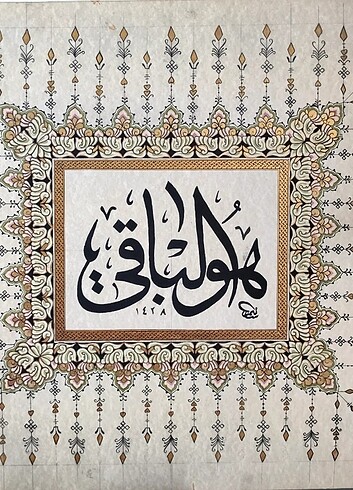 هوالباقي
١٤٢٨